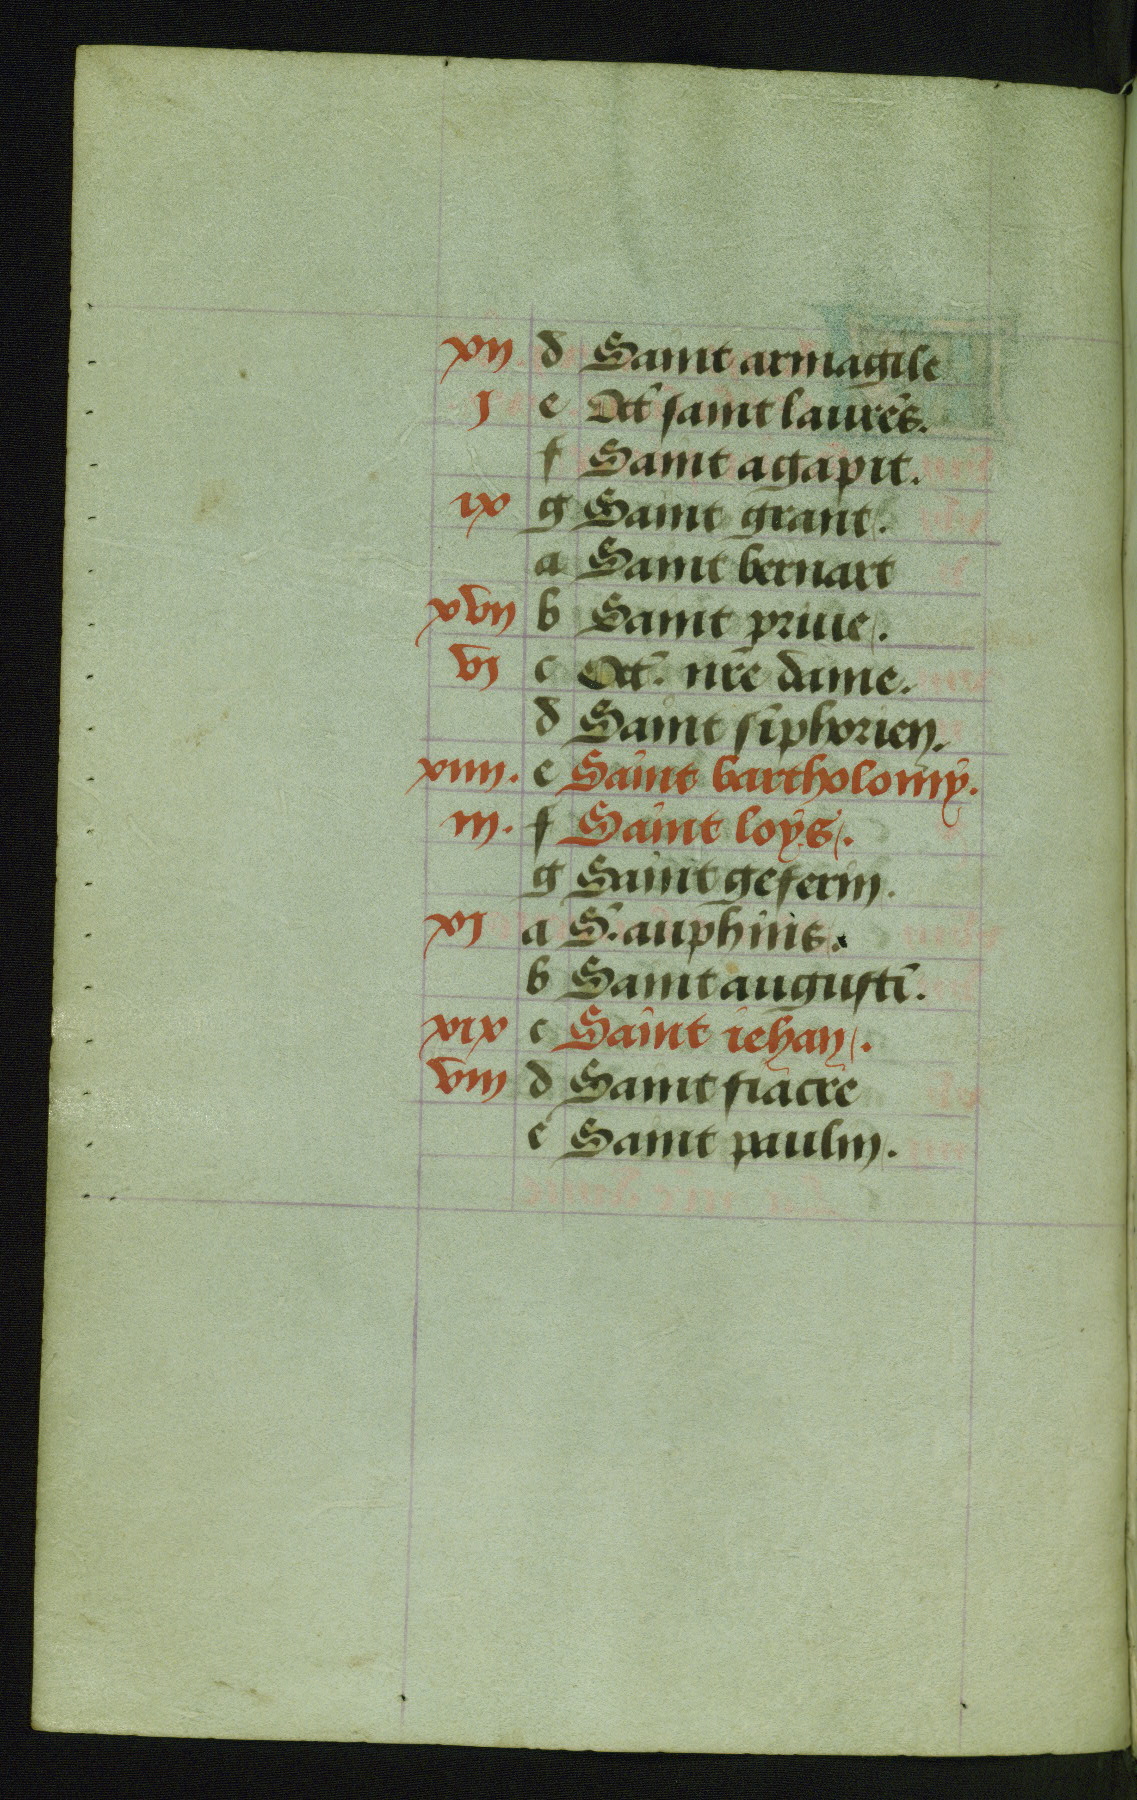 xij d Saint armagile
j e Oct saint laurēs.
f Saint agapit.
ix g Saint grant.
a Saint bernart
xvij b Saint priue.
vj c Oct. nr̄e dame.
d Saint siphorien.
xiiij. e Saint bartholomy.
iij. f Saint loys.
g Saint geferin.
xj a S. auphinis.
b Saint augustī.
xix c Saint iehan.
viij d Saint fiacre
e Saint paulin.